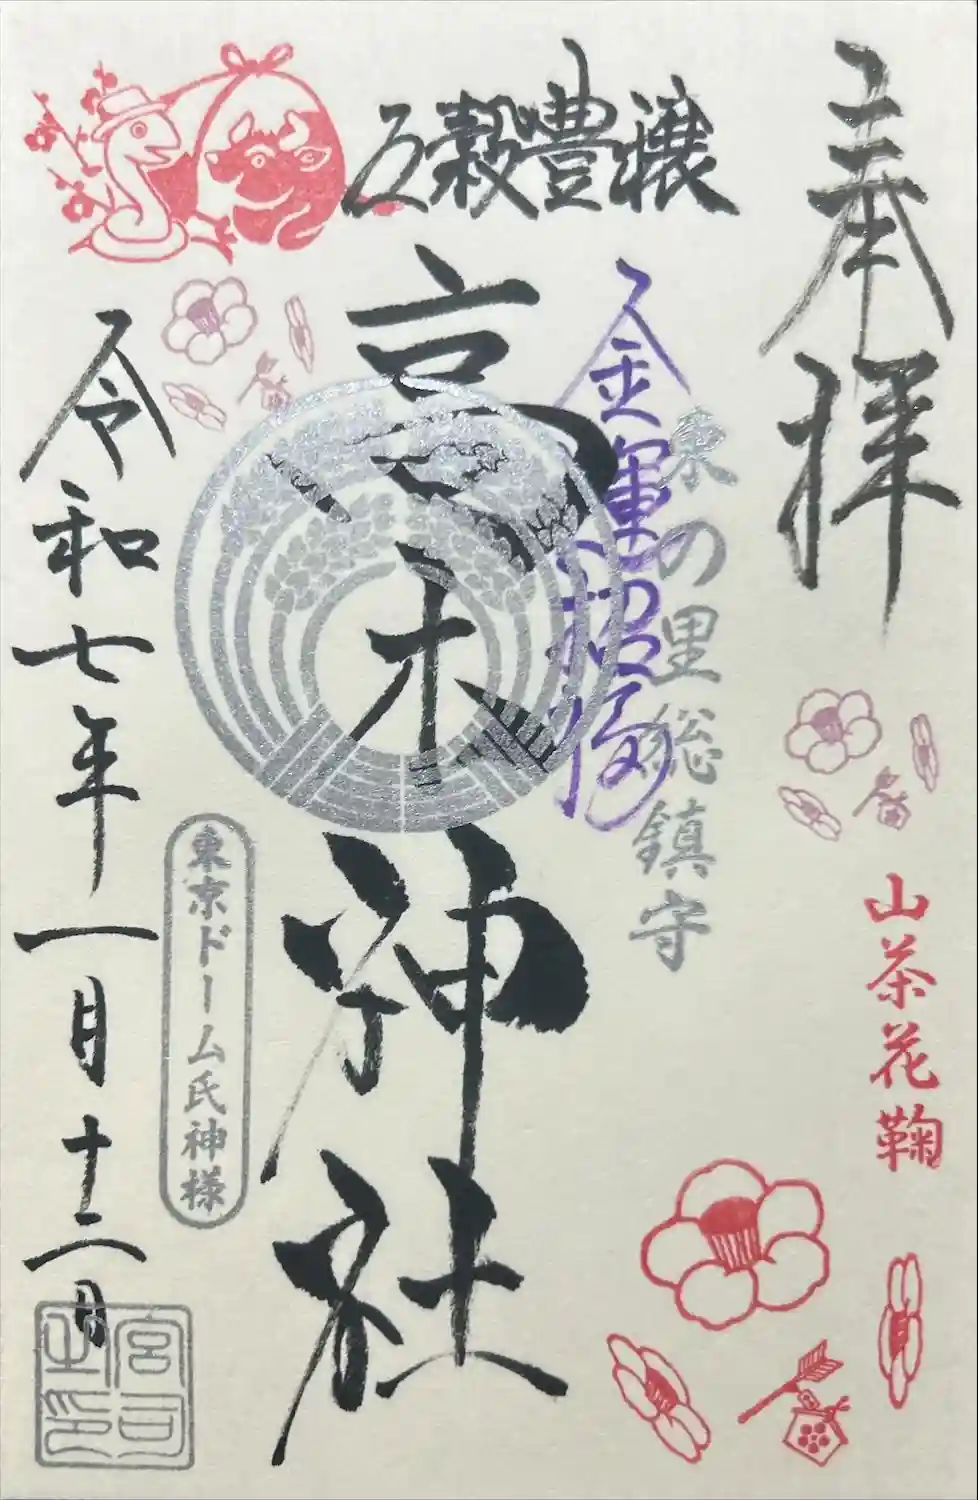 奉拝
山茶花鞠
の里総鎮守
金運招福
五穀豊穣
高木神社
東京ドーム氏神様
令和七年一月十二日
宮司之印